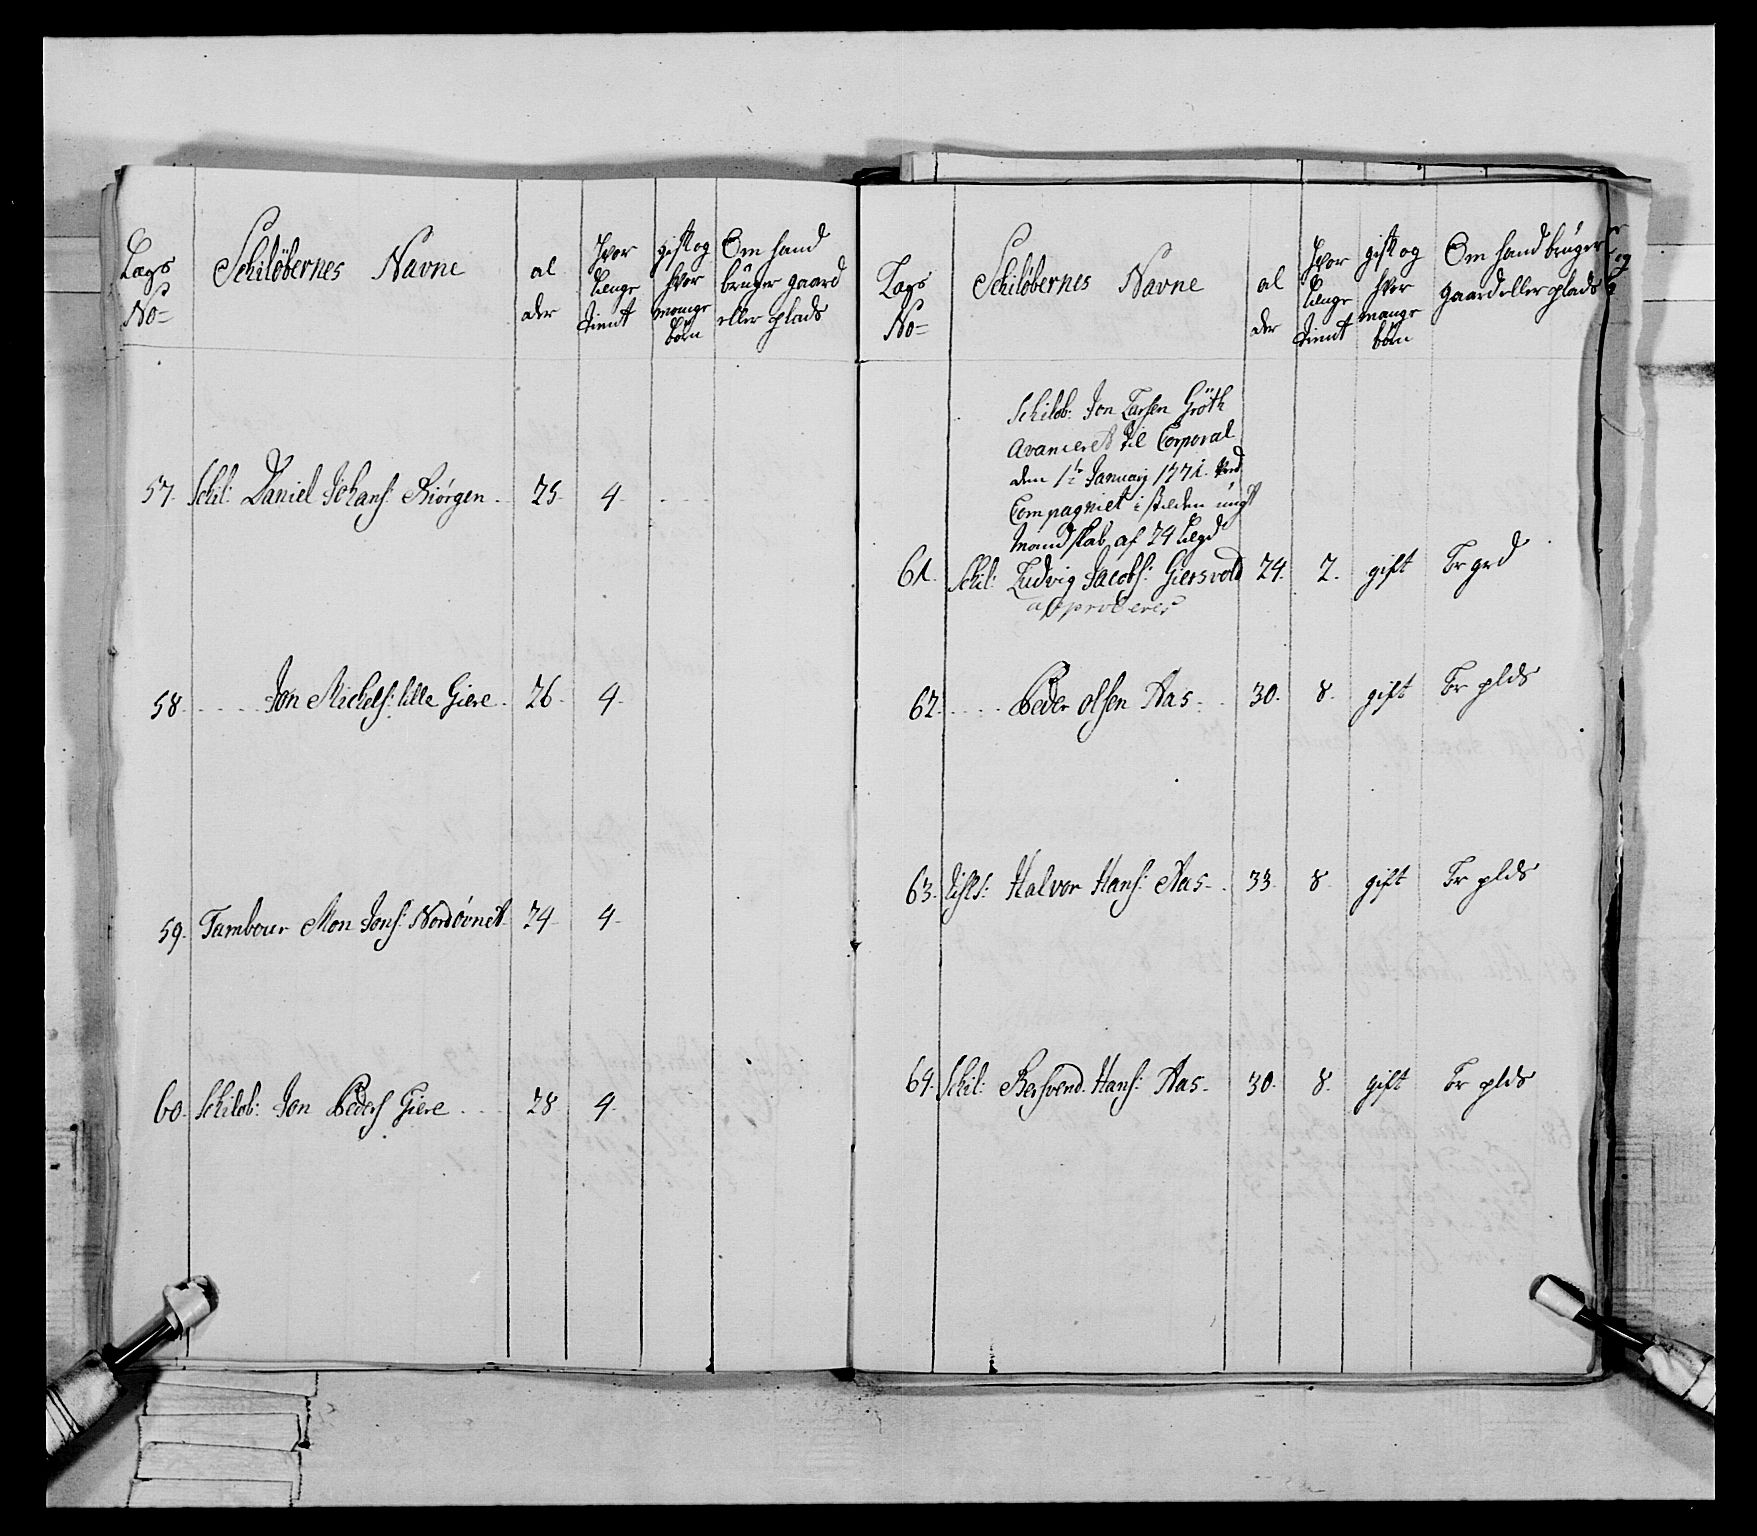 Lags No=
Schilöbernes Navne
al der
hvor længe tient
gift og hvor mange börn
Om hand bruger gaard eller plads
57. Schil: Daniel Johans: Kiörgen 25. 4.
58. Jon Michels: lille Giere. 26. 4.
59. Tambour Mon Jons: Nordövnet 24. 4.
60. Schilöb: Jon Peders Giere 28 4.
Lags No=
Schilöbernes Navne
al der
hvor længe tient
gift og hvor mange börn
Om hand bruger gaard eller plads
Schilöb: Jon Larsen Gröth
avanceret til Corporal
den 1te Januarij 1771. ved
Compagniet i steden ungt
Mandskab af 24 Lægd
61. Schil: Ludvig Jacobs: Giersvold 24. 2. gift br grd
approberes
62. Peder Olsen Aas. 30. 8. gift br plds
63. Halvor Hans: Aas. 33. 8. gift br plds
64. Schil: Bersvend Hans: Aas. 30. 8. gift br plds